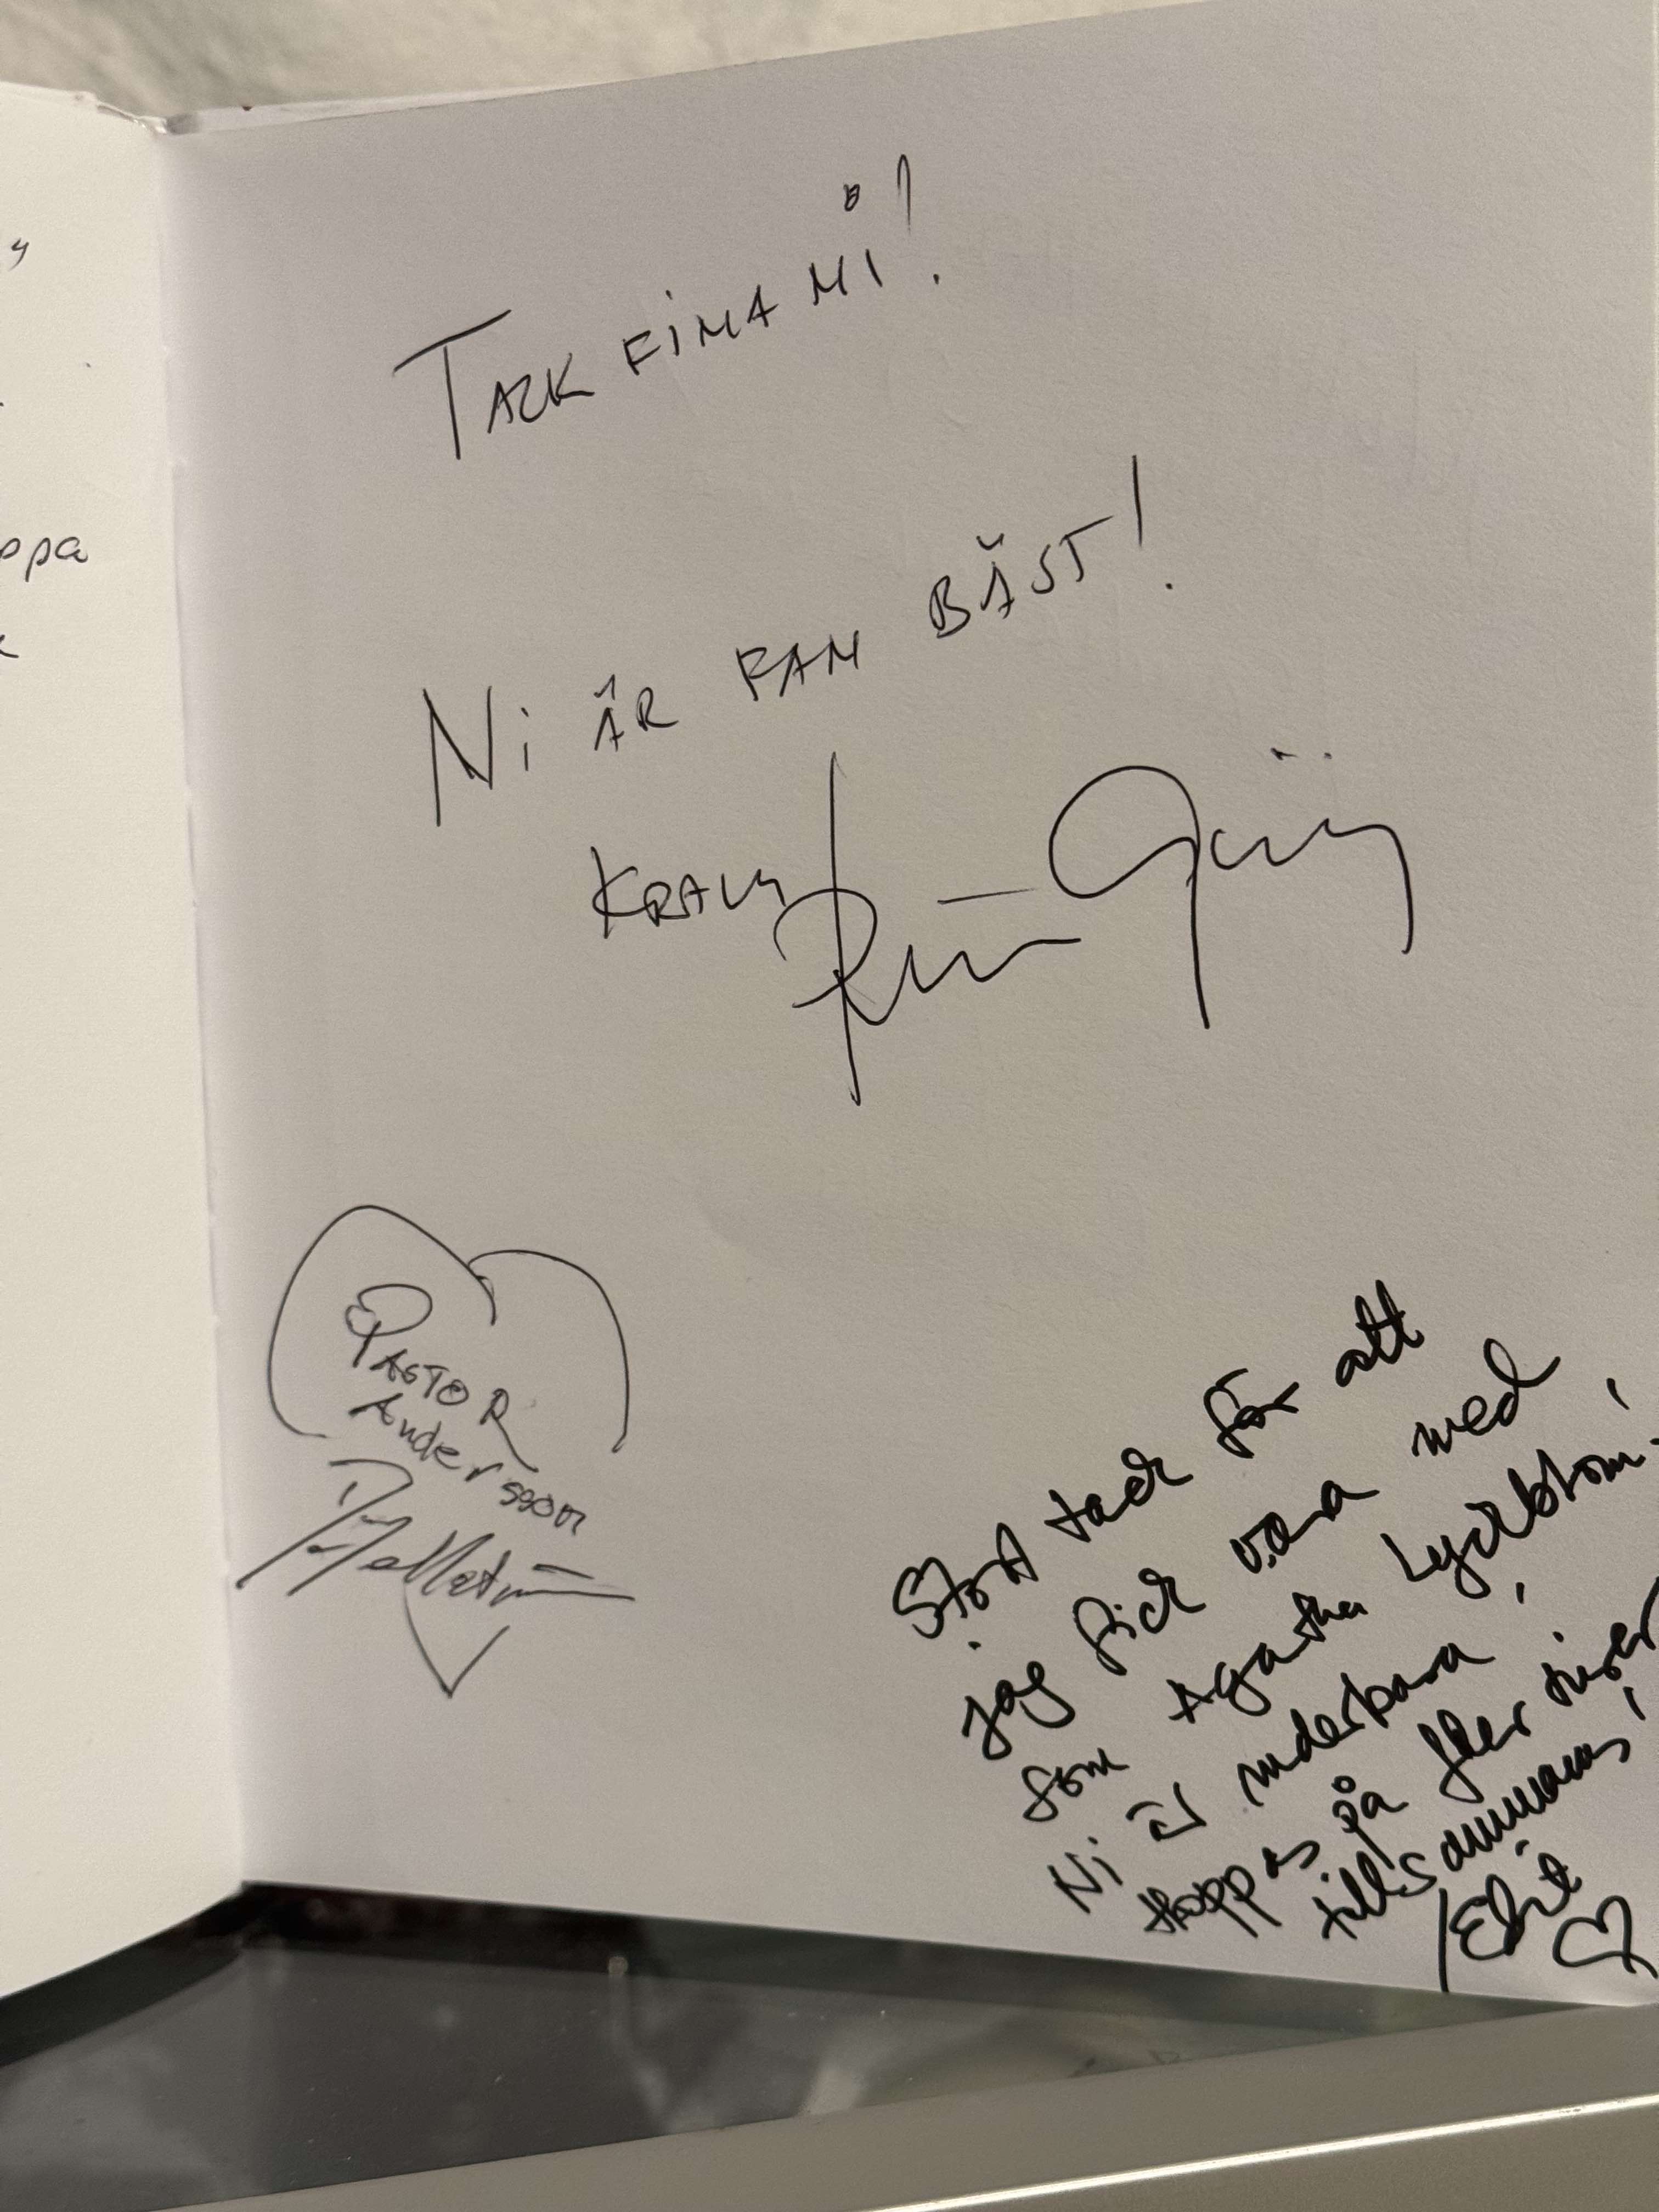 ppa
TACK FINA NI!
Ni ÄR FAN BÄST!
KRAM
PASTOR
Andersson
Stort tack för att
jag fick vara med
som Agatha Lyckblom!
Ni är underbara!
Hoppas på fler
tillsammans!